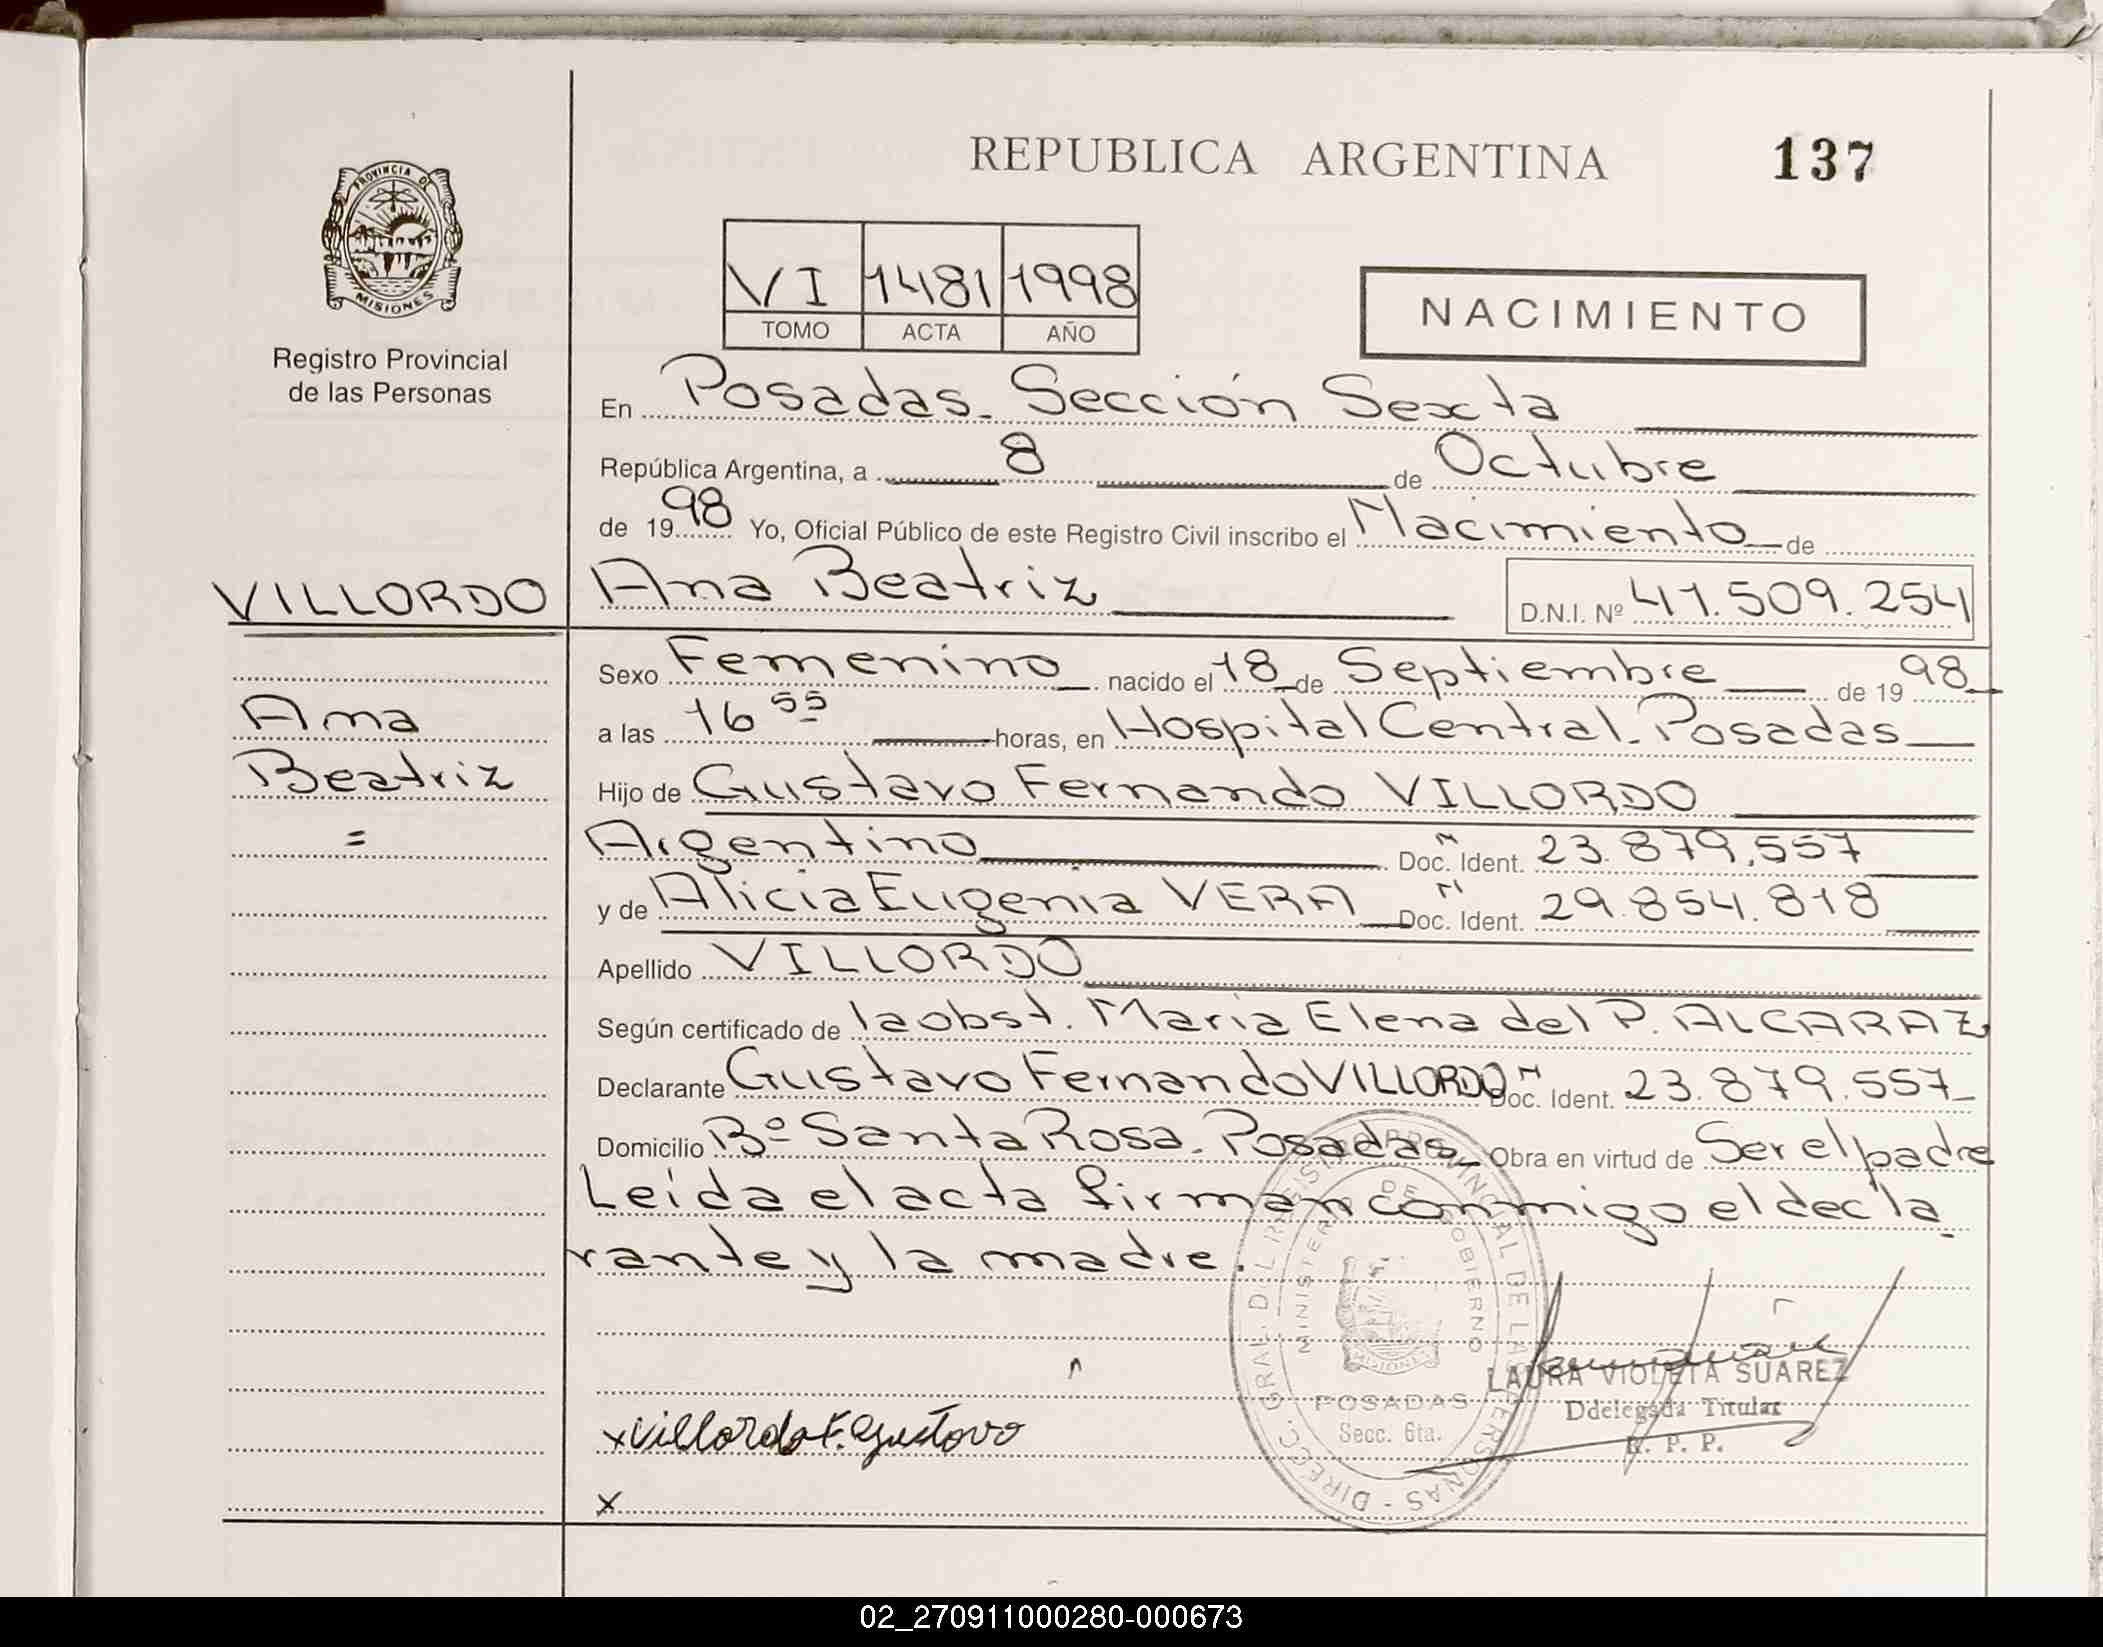 REPUBLICA ARGENTINA
137
PROVINCIA DE
MISIONES
Registro Provincial
de las Personas
VI 1481 1998
TOMO ACTA AÑO
NACIMIENTO
En Posadas. Sección Sexta
República Argentina, a 8 de Octubre
de 1998 Yo, Oficial Público de este Registro Civil inscribo el Nacimiento de
VILLORDO Ana Beatriz D.N.I. Nº 41.509.254
Ana
Beatriz
=
Sexo Femenino nacido el 18 de Septiembre de 1998
a las 16 55 horas, en Hospital Central. Posadas
Hijo de Gustavo Fernando VILLORDO
Argentino Doc. Ident. 23.879.557
y de Alicia Eugenia VERA Doc. Ident. 29.854.818
Apellido VILLORDO
Según certificado de la obst. Maria Elena del P. ALCARAZ
Declarante Gustavo Fernando VILLORDO Doc. Ident. 23.879.557
Domicilio Bº Santa Rosa. Posadas Obra en virtud de Ser el padre
Leída el acta firman conmigo el decla
rante y la madre.
DIRECC. GRAL. DEL REGISTRO PROVINCIAL DE LAS PERSONAS -
MINISTERIO DE GOBIERNO
MISIONES
POSADAS
Secc. 6ta.
LAURA VIOLETA SUAREZ
Ddelegada Titular
R. P. P.
x Villordo F. Gustavo
x
02_270911000280-000673